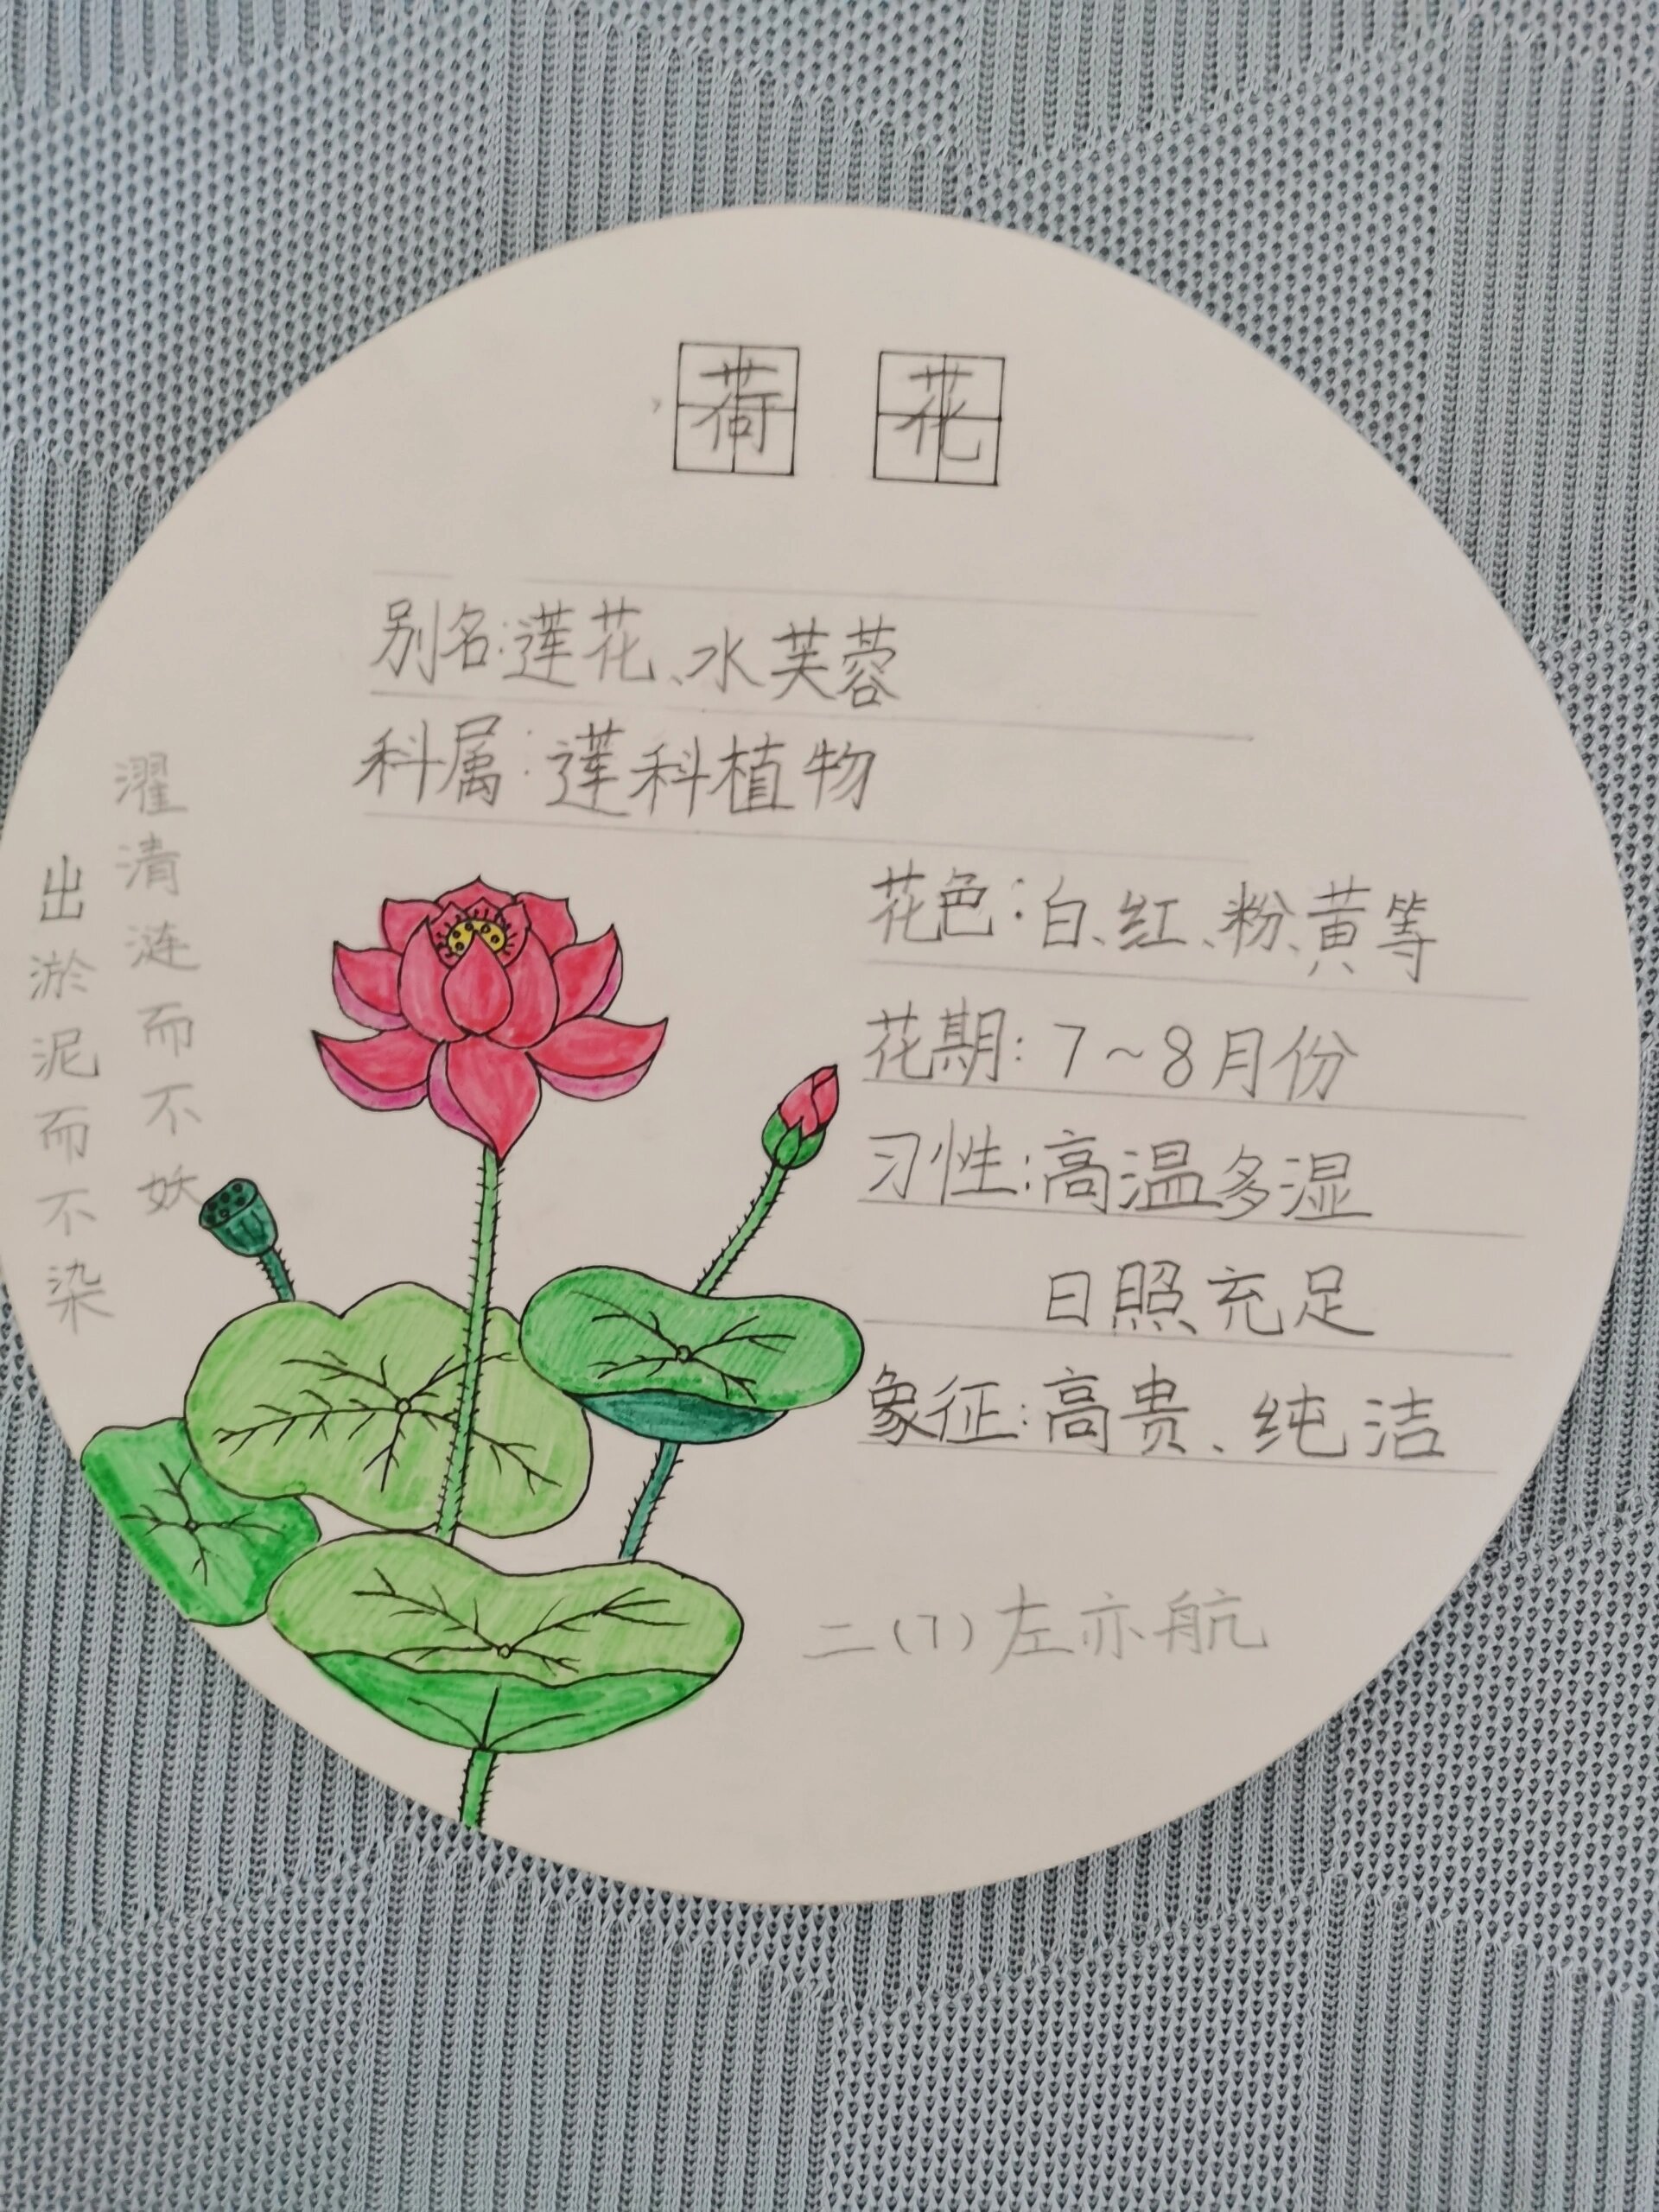 荷花
别名:莲花、水芙蓉
科属:莲科植物
花色:白、红、粉、黄等
花期:7~8月份
习性:高温多湿
日照充足
象征:高贵、纯洁
出淤泥而不染
濯清涟而不妖
二(7)左亦航